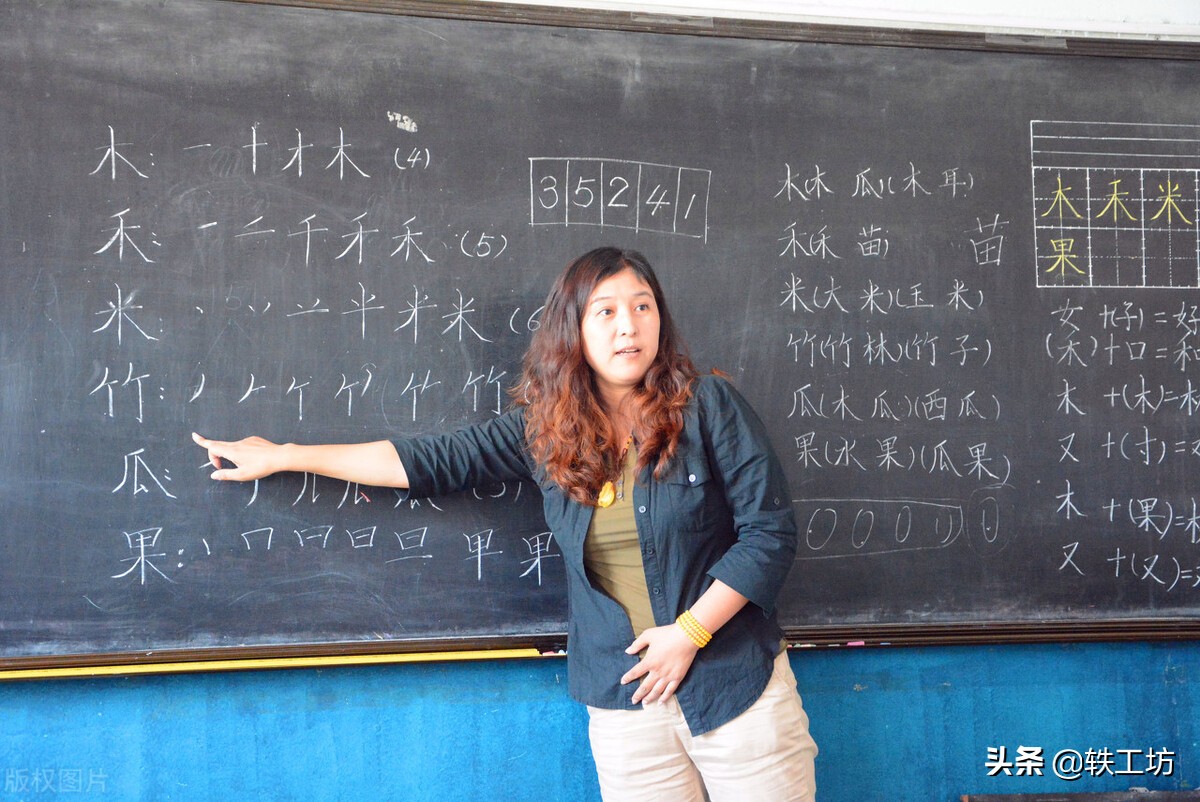 木: 一 十 才 木 (4)
禾: 一 二 千 禾 禾 (5)
米: 丶 丷 䒑 半 米 米 (6
竹: 丿 𠂉 竹
瓜:
果: 丨 冂 日 日 旦 甲 果
3 5 2 4 1
木(木 瓜)(木 耳)
禾(禾 苗) 苗
米(大 米)(玉 米)
竹(竹 林)(竹 子)
瓜(木 瓜)(西 瓜)
果(水 果)(瓜 果)
0 0 0
木 禾 米
果
女 +(子) = 好
(禾) + 口 = 和
木 +(木)=
又 +(寸)=
木 +(果)=
又 +(又)=
版权图片
头条 @轶工坊